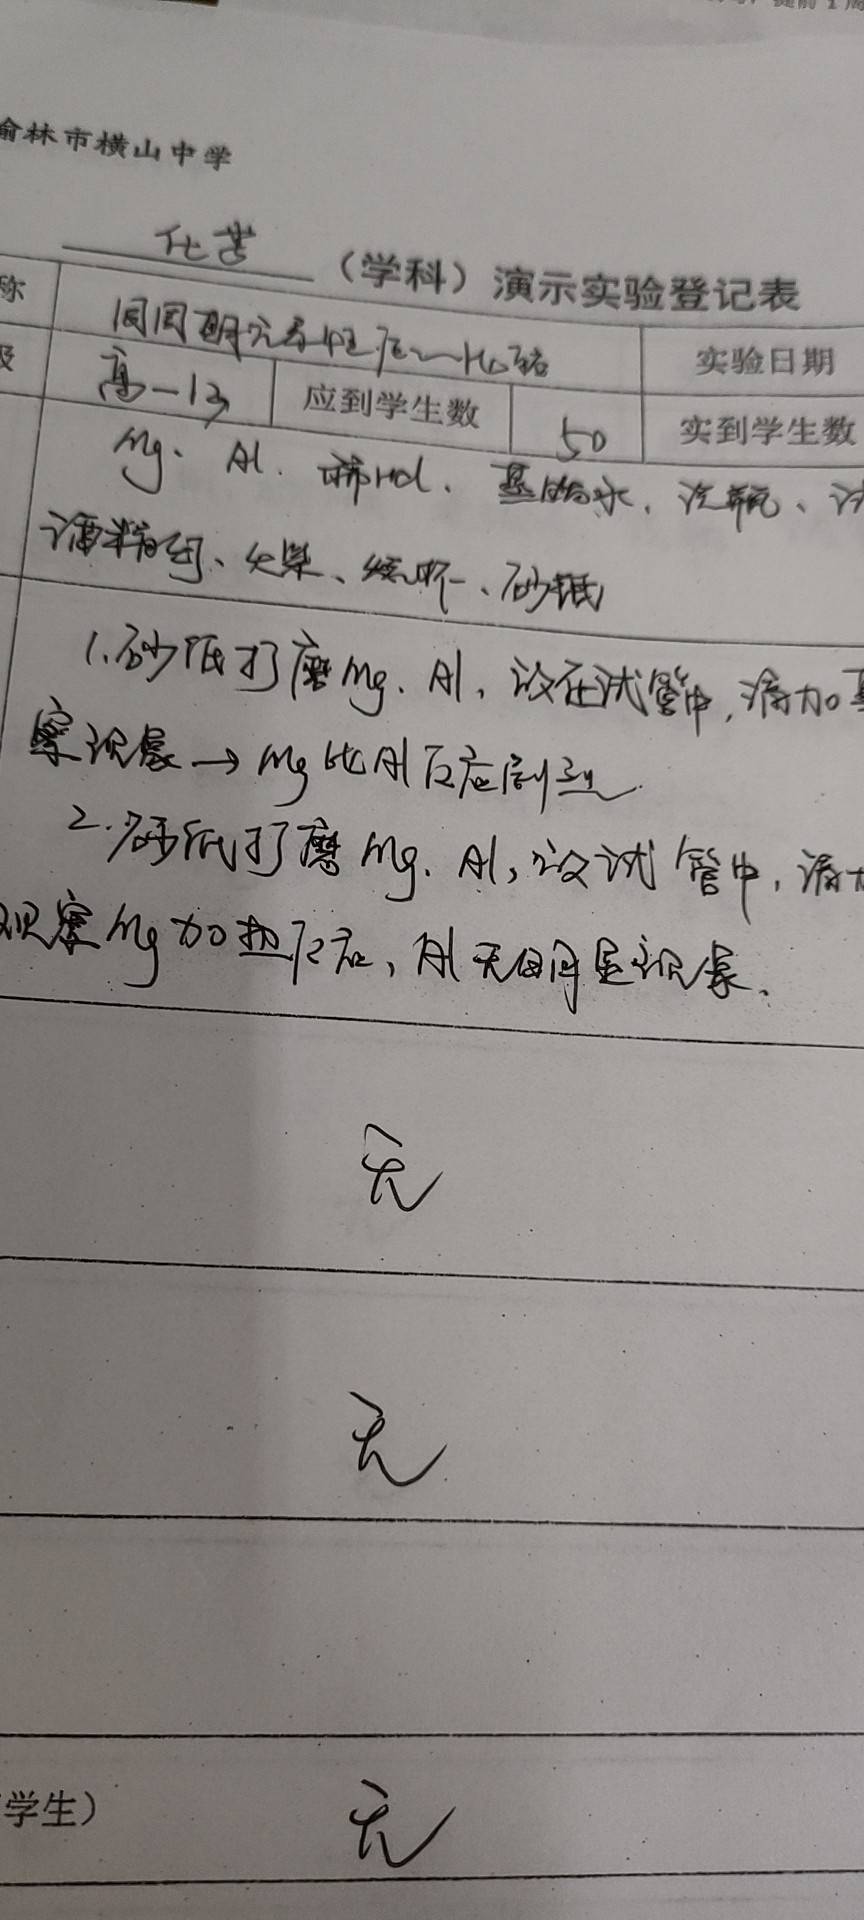 提前1周
榆林市横山中学
化学（学科）演示实验登记表
称 同周期元素性质 实验日期
级 高一13 应到学生数 50 实到学生数
Mg、Al、稀HCl、蒸馏水、洗瓶、试
酒精灯、火柴、烧杯、砂纸
1.砂纸打磨Mg、Al，放在试管中，滴加
察现象→Mg比Al反应剧烈
2.砂纸打磨Mg、Al，放试管中，滴加
观察Mg加热反应，Al无明显现象、
无
无
学生） 无